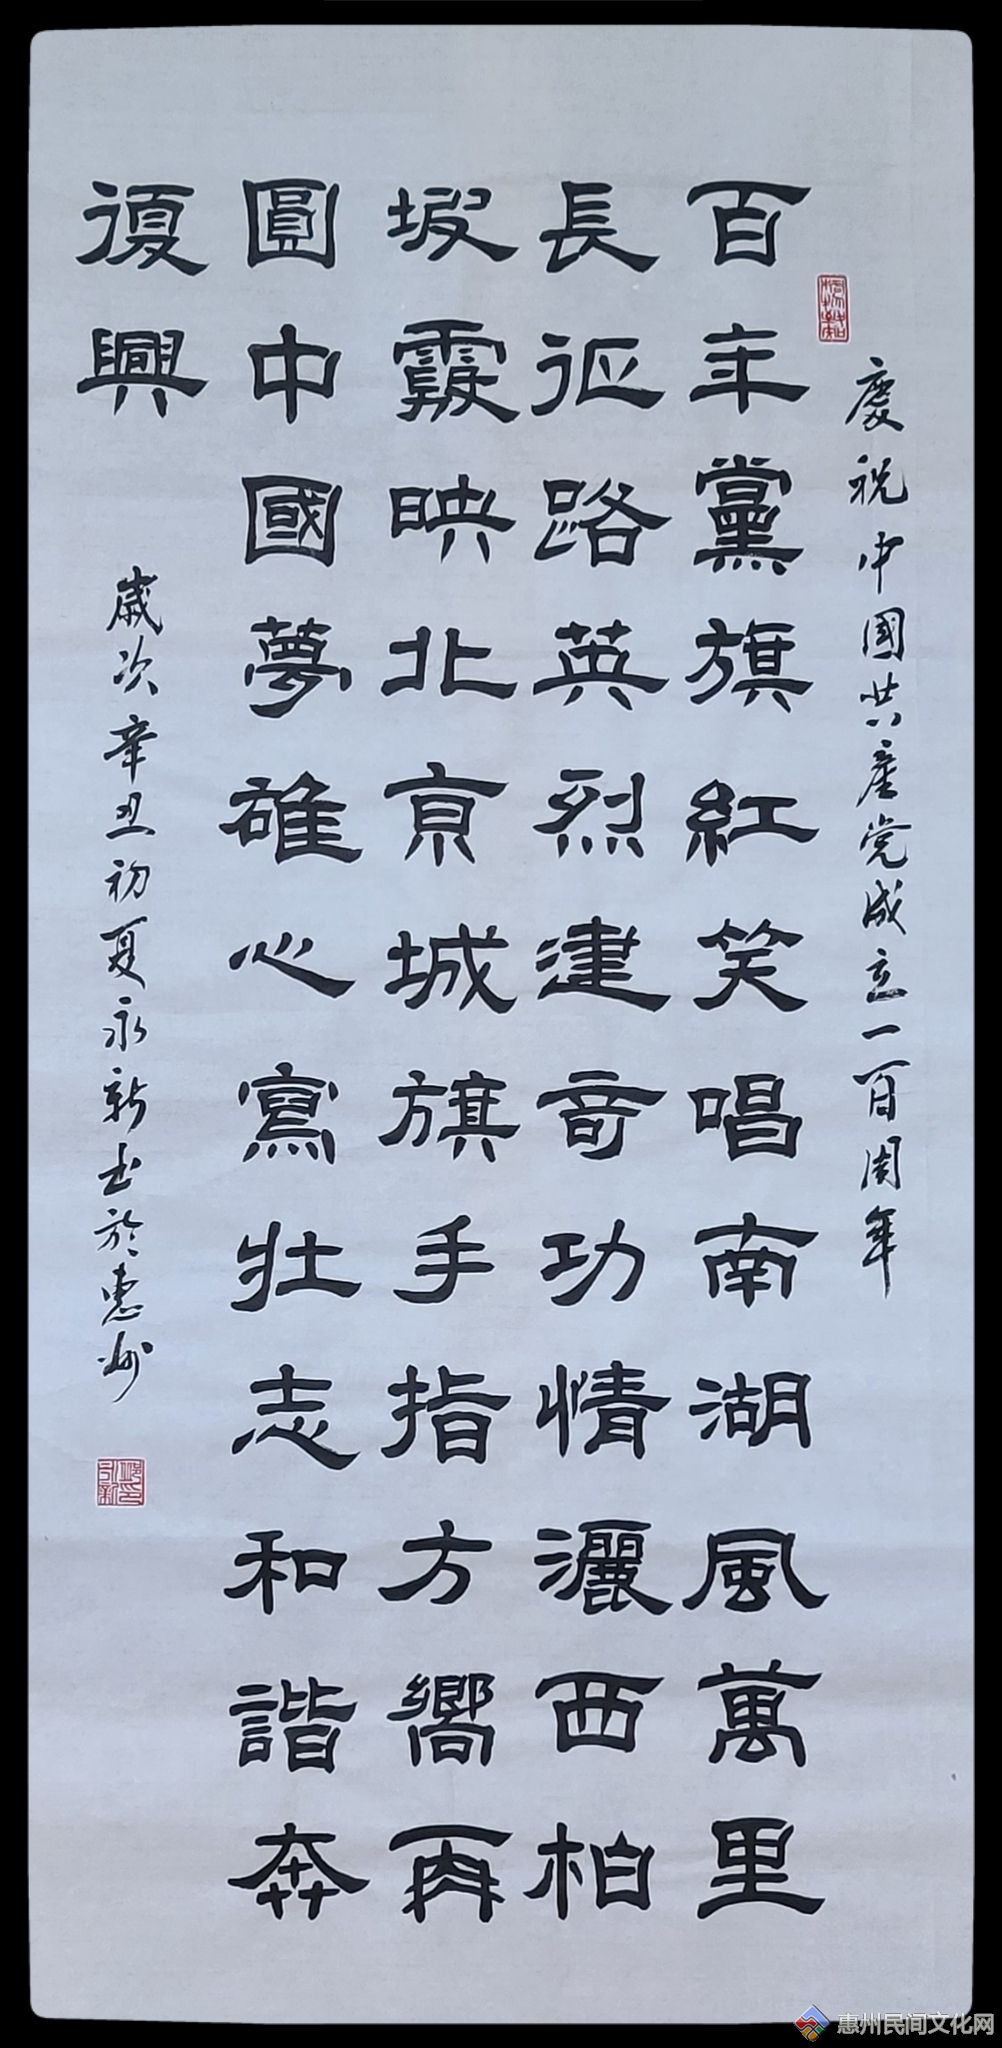 慶祝中国共産党成立一百周年
百年黨旗紅笑唱南湖風萬里
長征路英烈建奇功情灑西柏
坡霞映北京城旗手指方嚮再
圓中國夢雄心寫壯志和諧奔
復興
歲次辛丑初夏永新书於惠州
惠州民间文化网